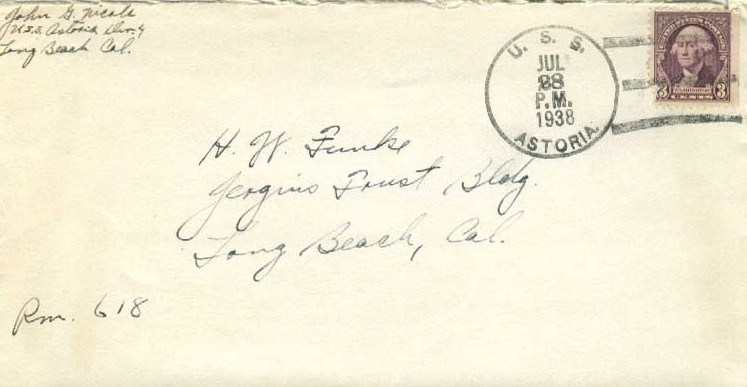 John G. Nicols
U.S.S. Astoria Div. 4
Long Beach Cal.
U. S. S.
JUL
28
P.M.
1938
ASTORIA
UNITED STATES POSTAGE
3 WASHINGTON 3
H. W. Funke
Jergins Trust Bldg.
Long Beach, Cal.
Rm. 618